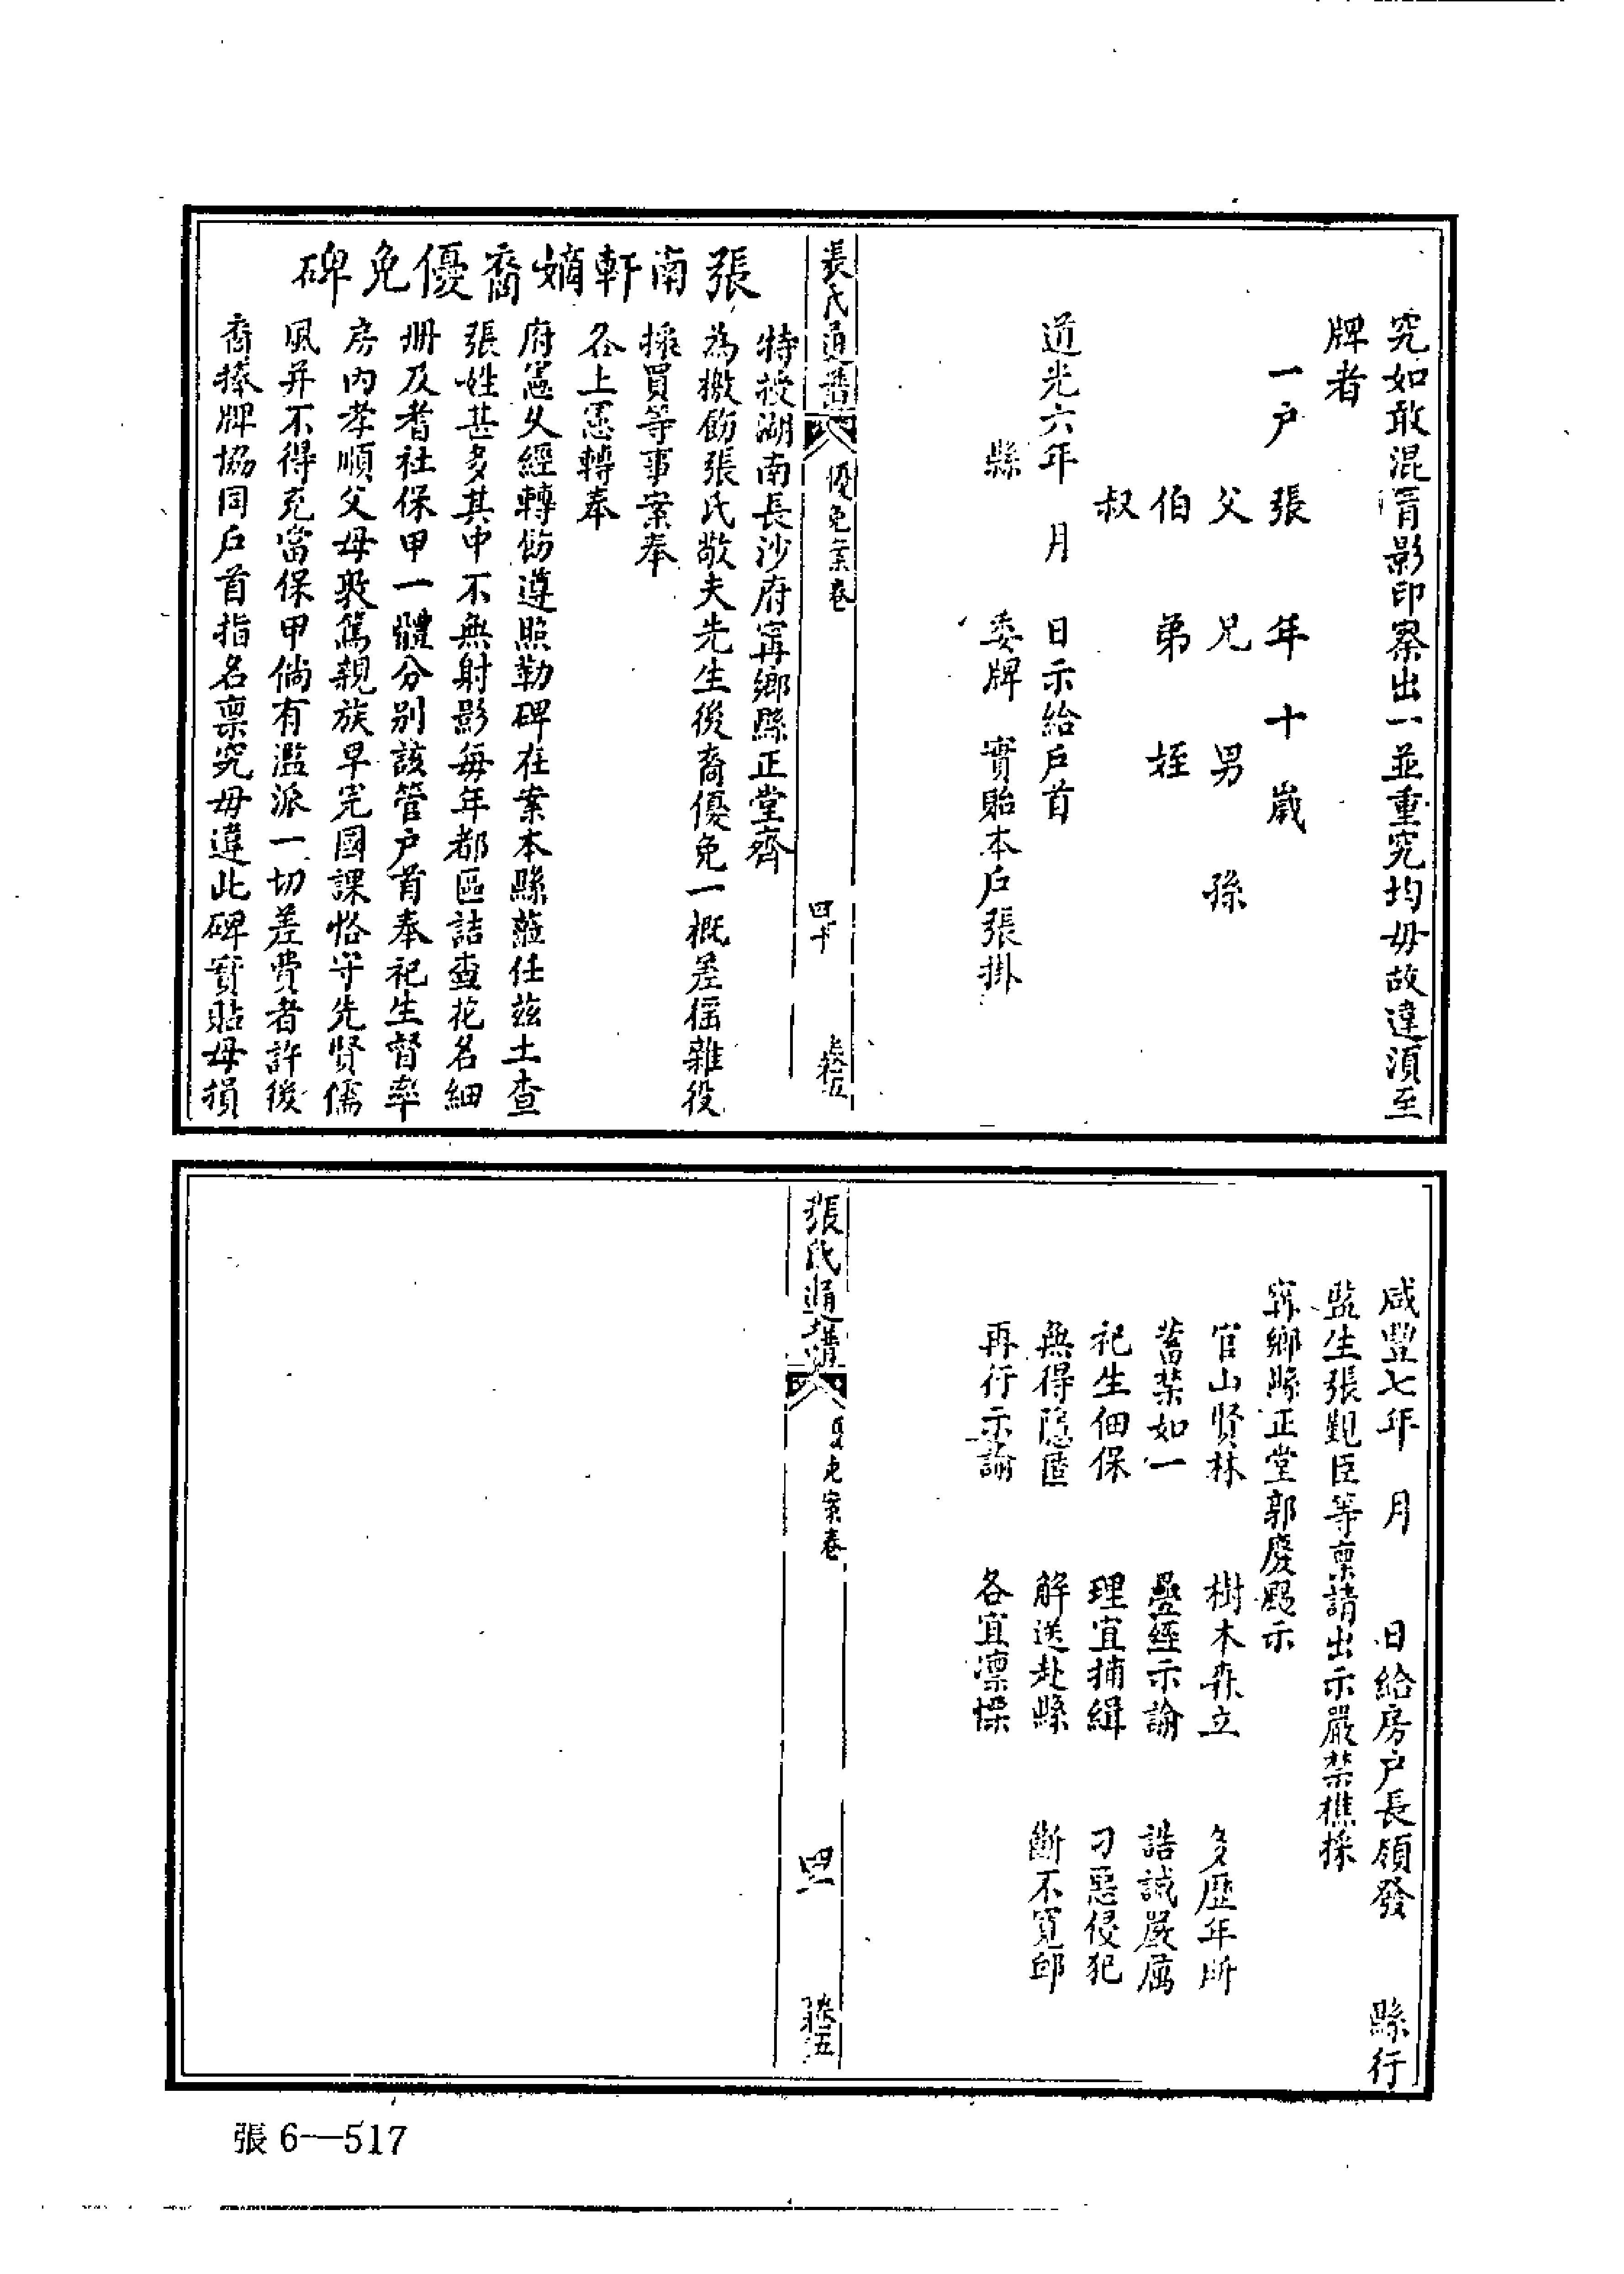 究如敢混冒影印察出一並重究均毋故違湏至
牌者
一户張　年十歲
父　兄　男　孫
伯　弟　姪
叔
道光六年　月　日示給戶首
縣　委牌　實貽本戶張掛
張氏通譜　優免案卷　四十　卷五
張南軒嫡裔優免碑
特授湖南長沙府寗鄉縣正堂齊
為檄飭張氏敬夫先生後裔優免一概差徭雜役
採買等事案奉
各上憲轉奉
府憲攵經轉飭遵照勒碑在案本縣蒞任茲土查
張姓甚多其中不無射影每年都區詰查花名細
冊及耆社保甲一體分別該管户首奉祀生督率
房內孝順父母敦篤親族早完國課恪守先賢儒
風并不得充當保甲倘有濫派一切差費者許後
裔捧牌協同戶首指名禀究毋違此碑實貼毋損
咸豐七年　月　日給房户長領發　縣行
監生張覲臣等禀請出示嚴禁樵採
寗鄉縣正堂郭慶颺示
官山賢林　樹木森立　多歷年所
蓄禁如一　疊經示諭　誥誡嚴厲
祀生佃保　理宜捕緝　刁惡侵犯
無得隱匿　解送赴縣　斷不寬卹
再行示諭　各宜凛慄
張氏通譜　案卷　卷五
張6—517